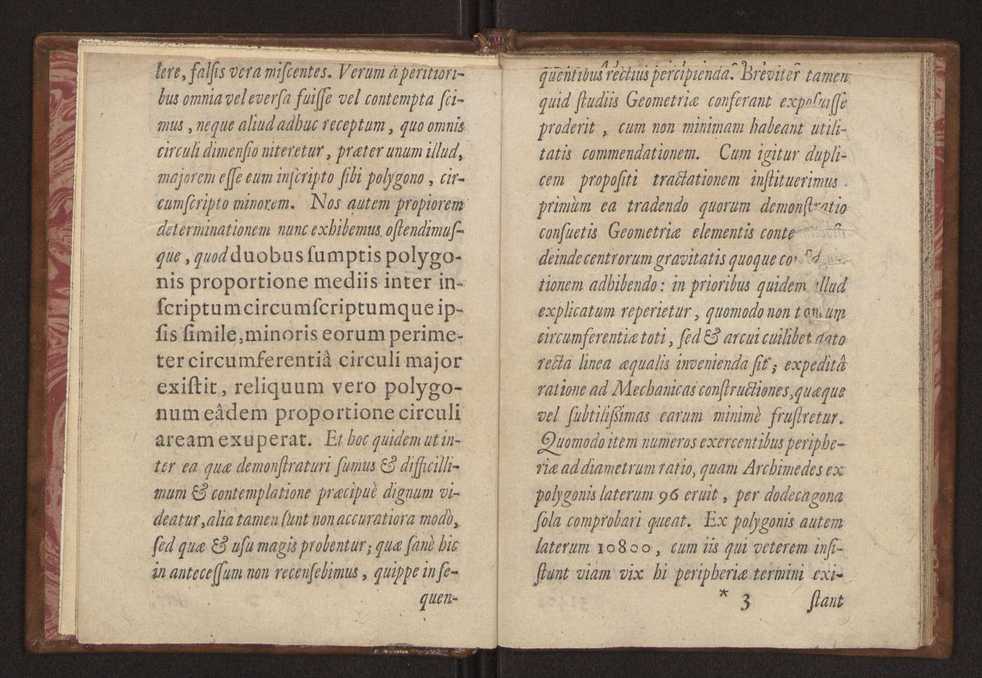 lere, falſis vera miſcentes. Verum à peritiori-
bus omnia vel everſa fuiſſe vel contempta ſci-
mus, neque aliud adhuc receptum, quo omnis
circuli dimenſio niteretur, præter unum illud,
majorem eſſe eum inſcripto ſibi polygono, cir-
cumſcripto minorem. Nos autem propiorem
determinationem nunc exhibemus, oſtendimuſ-
que, quod duobus ſumptis polygo-
nis proportione mediis inter in-
ſcriptum circumſcriptumque ip-
ſis ſimile, minoris eorum perime-
ter circumferentiâ circuli major
exiſtit, reliquum vero polygo-
num eâdem proportione circuli
aream exuperat. Et hoc quidem ut in-
ter ea quæ demonſtraturi ſumus & difficilli-
mum & contemplatione præcipuè dignum vi-
deatur, alia tamen ſunt non accuratiora modò,
ſed quæ & uſu magis probentur; quæ ſanè hic
in anteceſſum non recenſebimus, quippe in ſe-
quen-
quentibus rectius percipienda. Breviter tamen
quid ſtudiis Geometriæ conferant expoſuiſſe
proderit, cum non minimam habeant utili-
tatis commendationem. Cum igitur dupli-
cem propoſiti tractationem inſtituerimus
primùm ea tradendo quorum demonſtratio
conſuetis Geometriæ elementis conte
deinde centrorum gravitatis quoque co
tionem adhibendo: in prioribus quidem illud
explicatum reperietur, quomodo non tantum
circumferentiæ toti, ſed & arcui cuilibet dato
recta linea æqualis invenienda ſit; expeditâ
ratione ad Mechanicas conſtructiones, quæque
vel ſubtiliſſimas earum minimè fruſtretur.
Quomodo item numeros exercentibus periphe-
riæ ad diametrum ratio, quam Archimedes ex
polygonis laterum 96 eruit, per dodecagona
ſola comprobari queat. Ex polygonis autem
laterum 10800, cum iis qui veterem inſi-
ſtunt viam vix hi peripheriæ termini exi-
* 3 ſtant